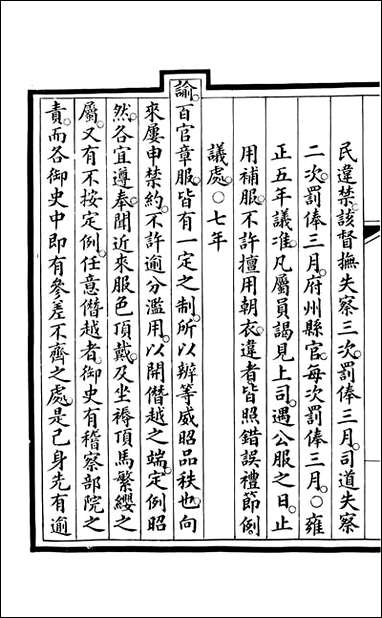 民違禁。該督撫失察三次。罰俸三月。司道失察
二次。罰俸三月。府州縣官。每次罰俸三月。○雍
正五年議准。凡屬員謁見上司。遇公服之日。止
用補服。不許擅用朝衣。違者皆照錯誤禮節例
議處。○七年
諭。百官章服。皆有一定之制。所以辨等威昭品秩也。向
來屢申禁約。不許逾分濫用。以開僭越之端。定例昭
然。各宜遵奉。聞近來服色頂戴。及坐褥頂馬繁纓之
屬。又有不按定例。任意僭越者。御史有稽察部院之
責。而各御史中即有參差不齊之處。是己身先有逾